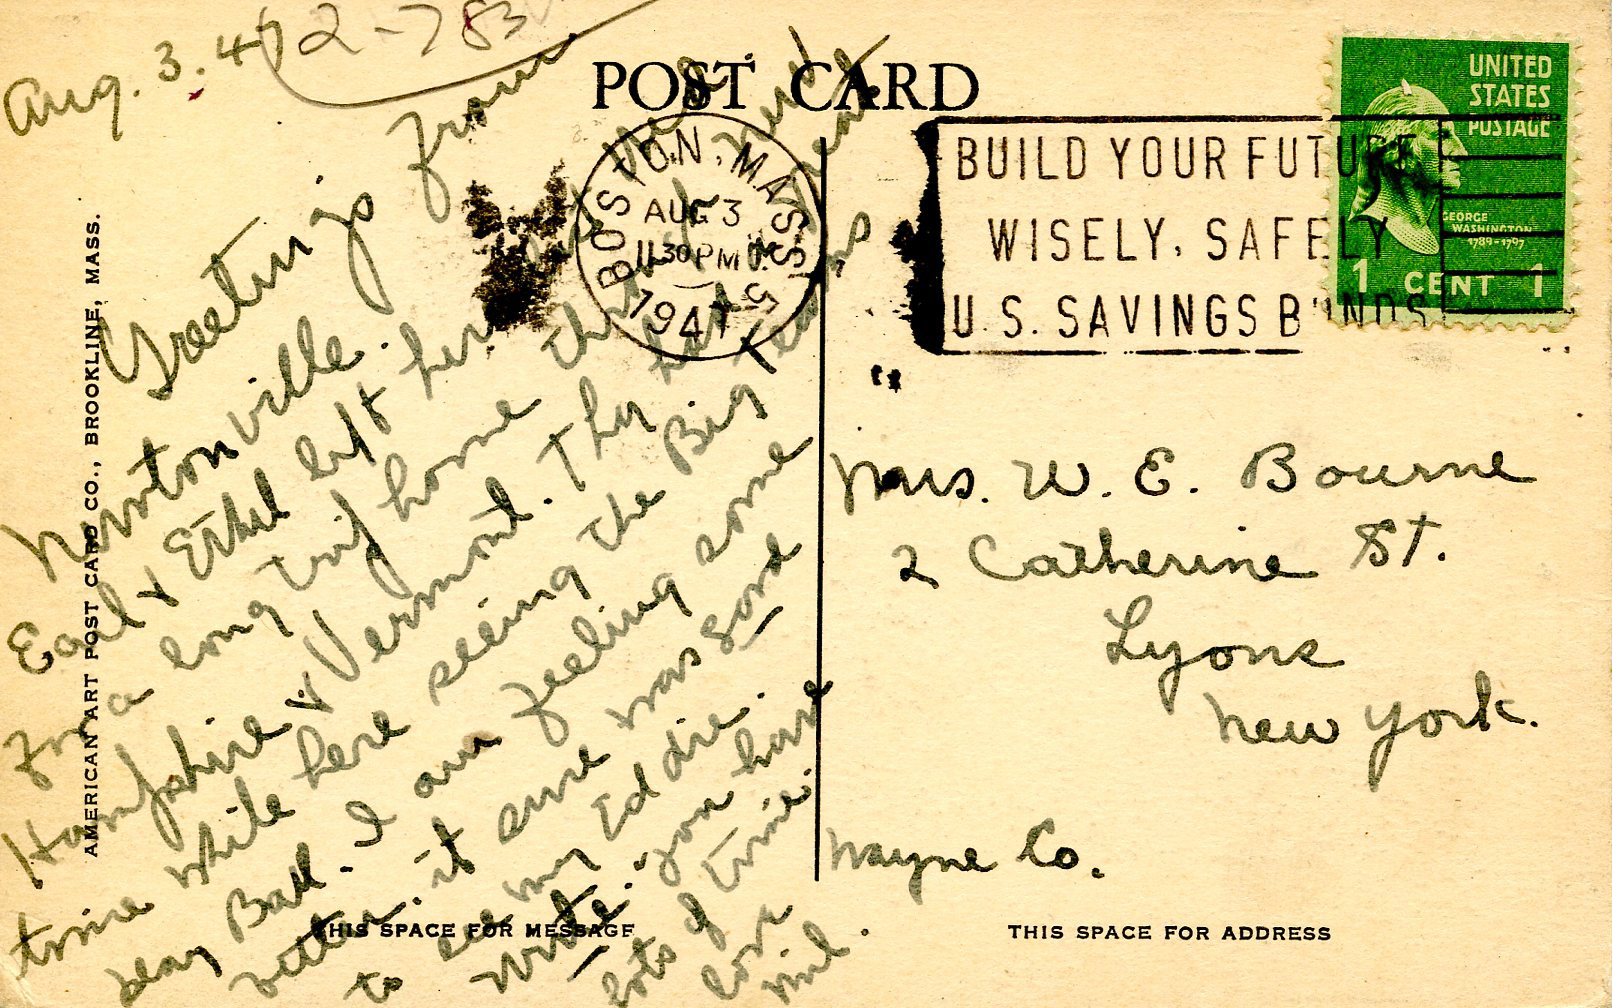 Aug. 3. 47
2-783
POST CARD
BOSTON, MASS.
AUG 3
11 30 PM
1947
BUILD YOUR FUTURE
WISELY, SAFELY
U.S. SAVINGS BONDS
UNITED
STATES
POSTAGE
GEORGE
WASHINGTON
1789-1797
1 CENT 1
Greetings from
Newtonville.
Earl & Ethel left here
for a long trip home
Hampshire & Vermont. They have
time while here seeing the Big
Bad. I am feeling some
better. it sure was good
to see my Eddie.
write. you have
lots of time.
love
AMERICAN ART POST CARD CO., BROOKLINE, MASS.
Mrs. W. E. Bourne
2 Catherine St.
Lyons
New York.
Wayne Co.
THIS SPACE FOR MESSAGE
THIS SPACE FOR ADDRESS